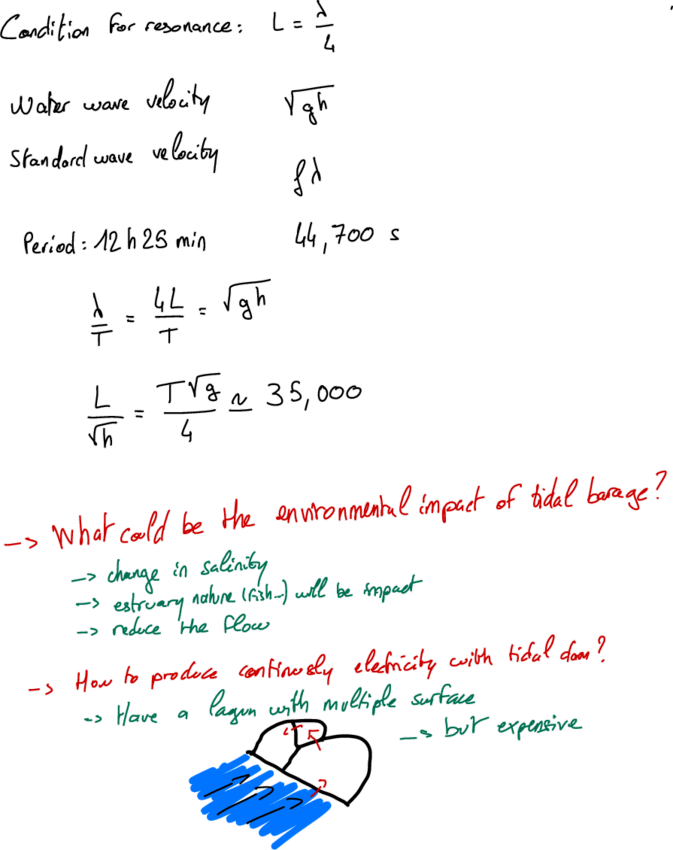 Condition for resonance: L = λ/4
Water wave velocity √gh
Standard wave velocity fλ
Period: 12 h 25 min 44,700 s
λ/T = 4L/T = √gh
L/√h = T√g/4 ≃ 35,000
-> What could be the environmental impact of tidal barage?
-> change in salinity
-> estruary nature (fish..) will be impact
-> reduce the flow
-> How to produce continuosly eletricity with tidal dam?
-> Have a lagun with multiple surface
-> but expensive